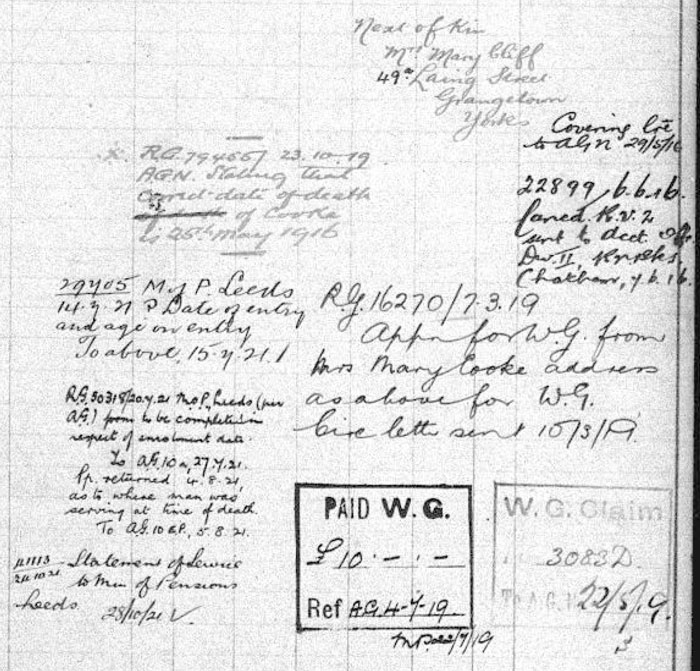 Next of Kin
Mrs Mary Cliff
49 Laing Street
Grangetown
Yorks
Covering
to AGN 29/5/16
22899, 6.6.16.
R.V. 2
sent to Acct. Offr
Dw. II,
Chatham, 7.6.16.
x. R.G. 79466/ 23.10.19
AGN. Stating that
correct date of death
of Cooke
is 25th May 1916
29405 M of P. Leeds
14.7.21 Date of entry
and age on entry
To above, 15.7.21.
R.G. 16270/7.3.19
Appn for W.G. from
Mrs Mary Cooke address
as above for W.G.
Circ letter sent 10/3/19.
R.G. 50318/20.7.21 M.o.P. Leeds (per
A.G.) form to be completed in
respect of enrolment date.
To A.G. 10 , 27.7.21.
Pp. returned 4.8.21,
as to where man was
serving at time of death.
To A.G. 10 , 5.8.21.
Statement of Service
to Min of Pensions
Leeds 28/10/21
PAID W.G.
£ 10 . - . -
Ref A.G. 4-7-19.
/7/19
W.G. Claim
3083D
To A.G. 22/5/19.
3